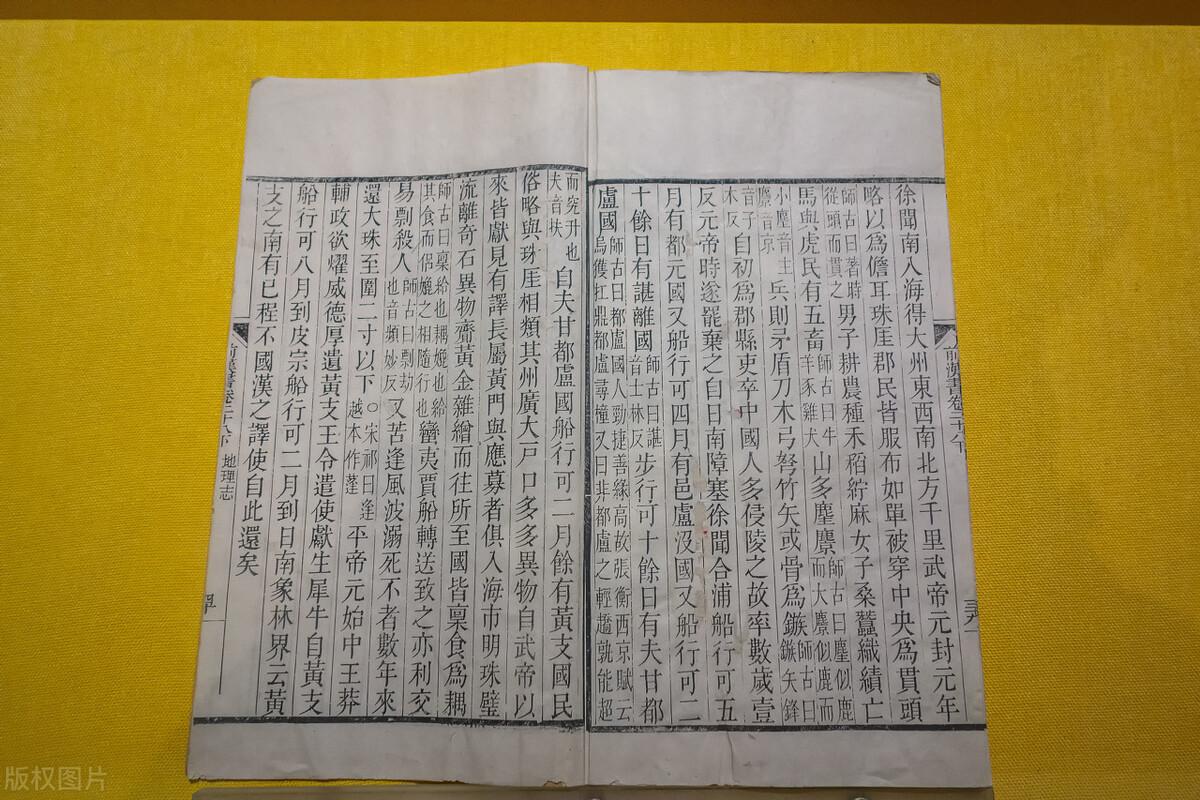 前漢書卷二十八下
徐聞南入海得大州東西南北方千里武帝元封元年
略以爲儋耳珠厓郡民皆服布如單被穿中央爲貫頭
師古曰著時從頭而貫之男子耕農種禾稻紵麻女子桑蠶織績亡
馬與虎民有五畜師古曰牛羊豕雞犬山多麈麖師古曰麈似鹿而大麖似鹿而
小麈音主麖音京兵則矛盾刀木弓弩竹矢或骨爲鏃師古曰鏃矢鋒
音子木反自初爲郡縣吏卒中國人多侵陵之故率數歲壹
反元帝時遂罷棄之自日南障塞徐聞合浦船行可五
月有都元國又船行可四月有邑盧沒國又船行可二
十餘日有諶離國師古曰諶音士林反步行可十餘日有夫甘都
盧國師古曰都盧國人勁捷善緣高故張衡西京賦云烏獲扛鼎都盧尋橦又曰非都盧之輕趫孰能超
而究升也夫音扶自夫甘都盧國船行可二月餘有黃支國民
俗略與珠厓相類其州廣大戶口多多異物自武帝以
來皆獻見有譯長屬黃門與應募者俱入海市明珠璧
流離奇石異物齎黃金雜繒而往所至國皆稟食爲耦
師古曰稟給也耦媲也給其食而侶媲之相隨行也蠻夷賈船轉送致之亦利交
易剽殺人師古曰剽劫也音頻妙反又苦逢風波溺死不者數年來
還大珠至圍二寸以下○宋祁曰逢越本作蓬平帝元始中王莽
輔政欲耀威德厚遺黃支王令遣使獻生犀牛自黃支
船行可八月到皮宗船行可二月到日南象林界云黃
支之南有已程不國漢之譯使自此還矣
前漢書卷二十八下 地理志
版权图片